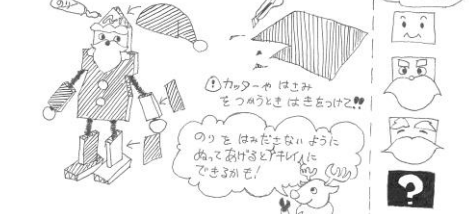 のり
!カッターや はさみ
をつかうとき は きをつけて!!
のりを はみださないように
ぬってあげるとキレイに
できるかも!
?